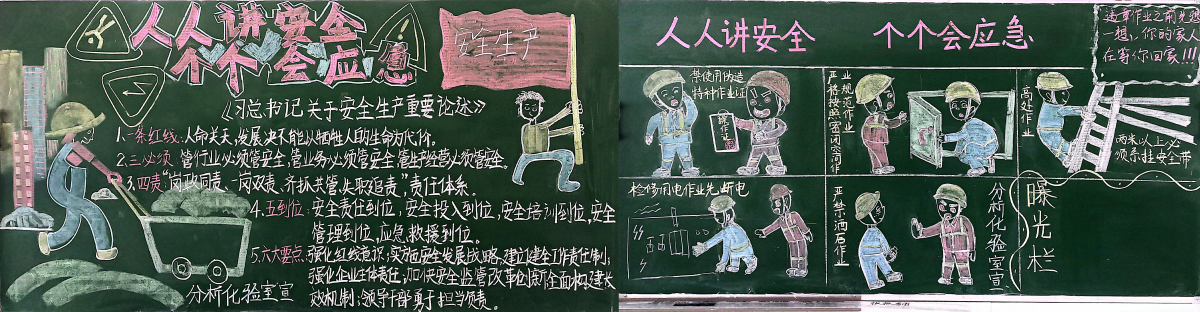 人人讲安全
个个会应急
安全生产
《习总书记关于安全生产重要论述》
1.一条红线:人命关天,发展决不能以牺牲人的生命为代价。
2.三必须:管行业必须管安全,管业务必须管安全,管生产经营必须管安全
3.四责"党政同责、一岗双责、齐抓共管、失职追责"责任体系.
4.五到位:安全责任到位,安全投入到位,安全培训到位,安全
管理到位,应急救援到位。
5.六大要点:强化红线意识;实施安全发展战略;建立健全工作责任制;
强化企业主体责任;加快安全监管改革创新;全面构建长
效机制;领导干部勇于担当负责.
分析化验室宣
人人讲安全 个个会应急
违章作业之前先想
一想,你的家人
在等你回家!!!
禁使用伪造
特种作业证
操作证
严格按照密闭空间作
业规范作业
高处作业
两米以上必
须系挂安全带
检修用电作业先断电
严禁酒后作业
分析化验室宣
曝光栏